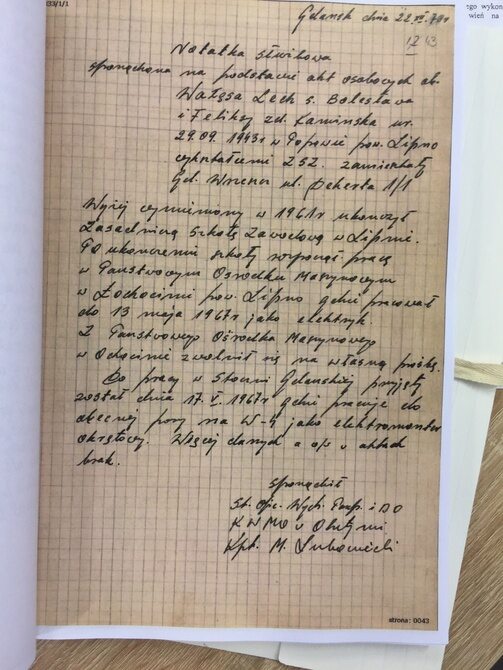 33/1/1
ego wykon
wień na
Gdańsk dnia 22 XII 79r
12 43
Notatka służbowa
sporządzona na podstawie akt osobowych ob.
Wałęsa Lech s. Bolesława
i Feliksy zd. Kamińska ur.
29.09.1943r w Popowie pow. Lipno
wykształcenie ZSZ. zamieszkały
Gd. Wrzeszcz ul. Dekerta 1/1
Wyżej wymieniony w 1961r ukończył
Zasadniczą Szkołę Zawodową w Lipnie.
Po ukończeniu szkoły rozpoczął pracę
w Państwowym Ośrodku Maszynowym
w Łochocinie pow. Lipno gdzie pracował
do 13 maja 1967r jako elektryk.
Z Państwowego Ośrodka Maszynowego
w Łochocinie zwolnił się na własną prośbę.
Do pracy w Stoczni Gdańskiej przyjęty
został dnia 17. V. 1967r gdzie pracuje do
obecnej pory na W-4 jako elektromonter
okrętowy. Więcej danych w aktach
brak.
sporządził
St. Insp. Wydz.
KWMO w Olsztynie
Kpt. M.
strona: 0043